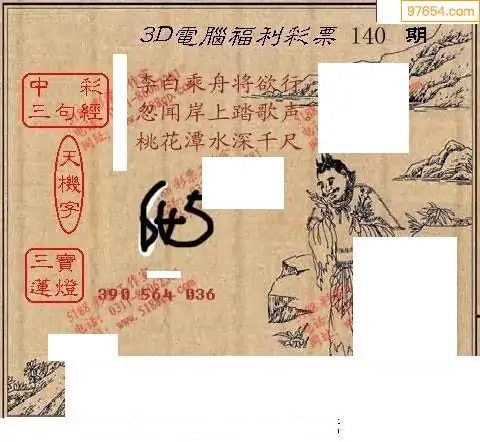 97654.com
3D電腦福利彩票 140 期
中彩
三句經
李白乘舟将欲行
忽闻岸上踏歌声
桃花潭水深千尺
天機字
645
三寶
蓮燈
390 564 036